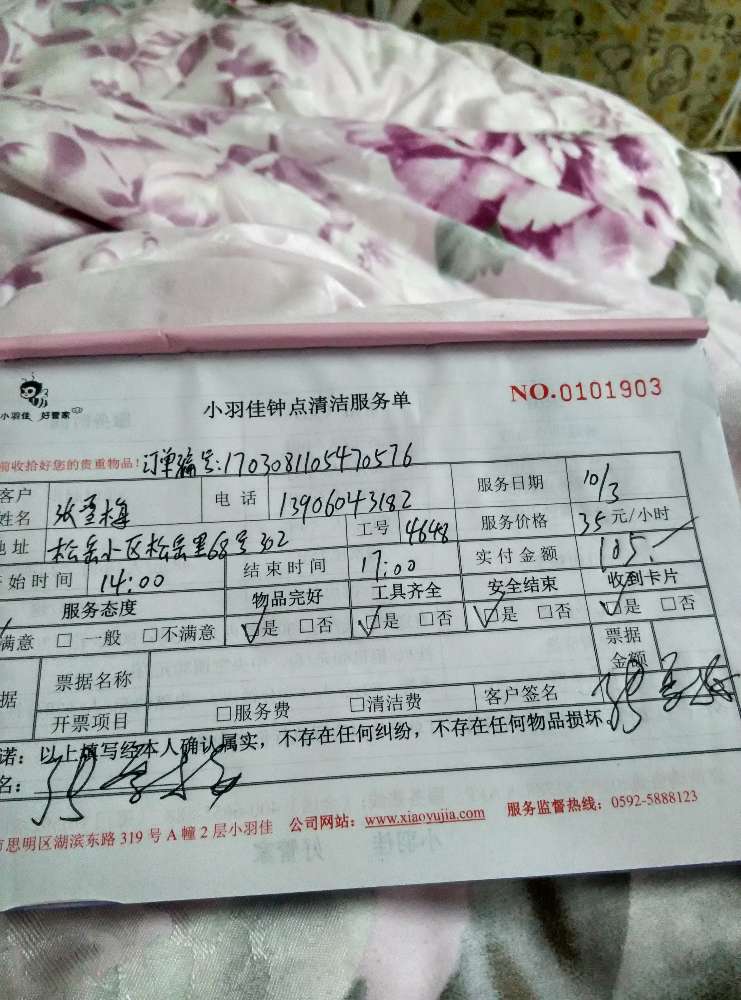 小羽佳 好管家
小羽佳钟点清洁服务单
NO.0101903
前收拾好您的贵重物品!
订单编号:1703081105470576
客户姓名 张雪梅 电话 13906043182 服务日期 10/3
地址 松岳小区松岳里68号302 工号 4648 服务价格 35元/小时
开始时间 14:00 结束时间 17:00 实付金额 105.—
服务态度 物品完好 工具齐全 安全结束 收到卡片
满意 □ 一般 □不满意 ☑是 □否 ☑是 □否 ☑是 □否 ☑是 □否
据 票据名称 票据金额
开票项目 □服务费 □清洁费 客户签名 张雪梅
诺:以上填写经本人确认属实,不存在任何纠纷,不存在任何物品损坏.
名:张雪梅
市思明区湖滨东路319号A幢2层小羽佳 公司网站:www.xiaoyujia.com 服务监督热线:0592-5888123